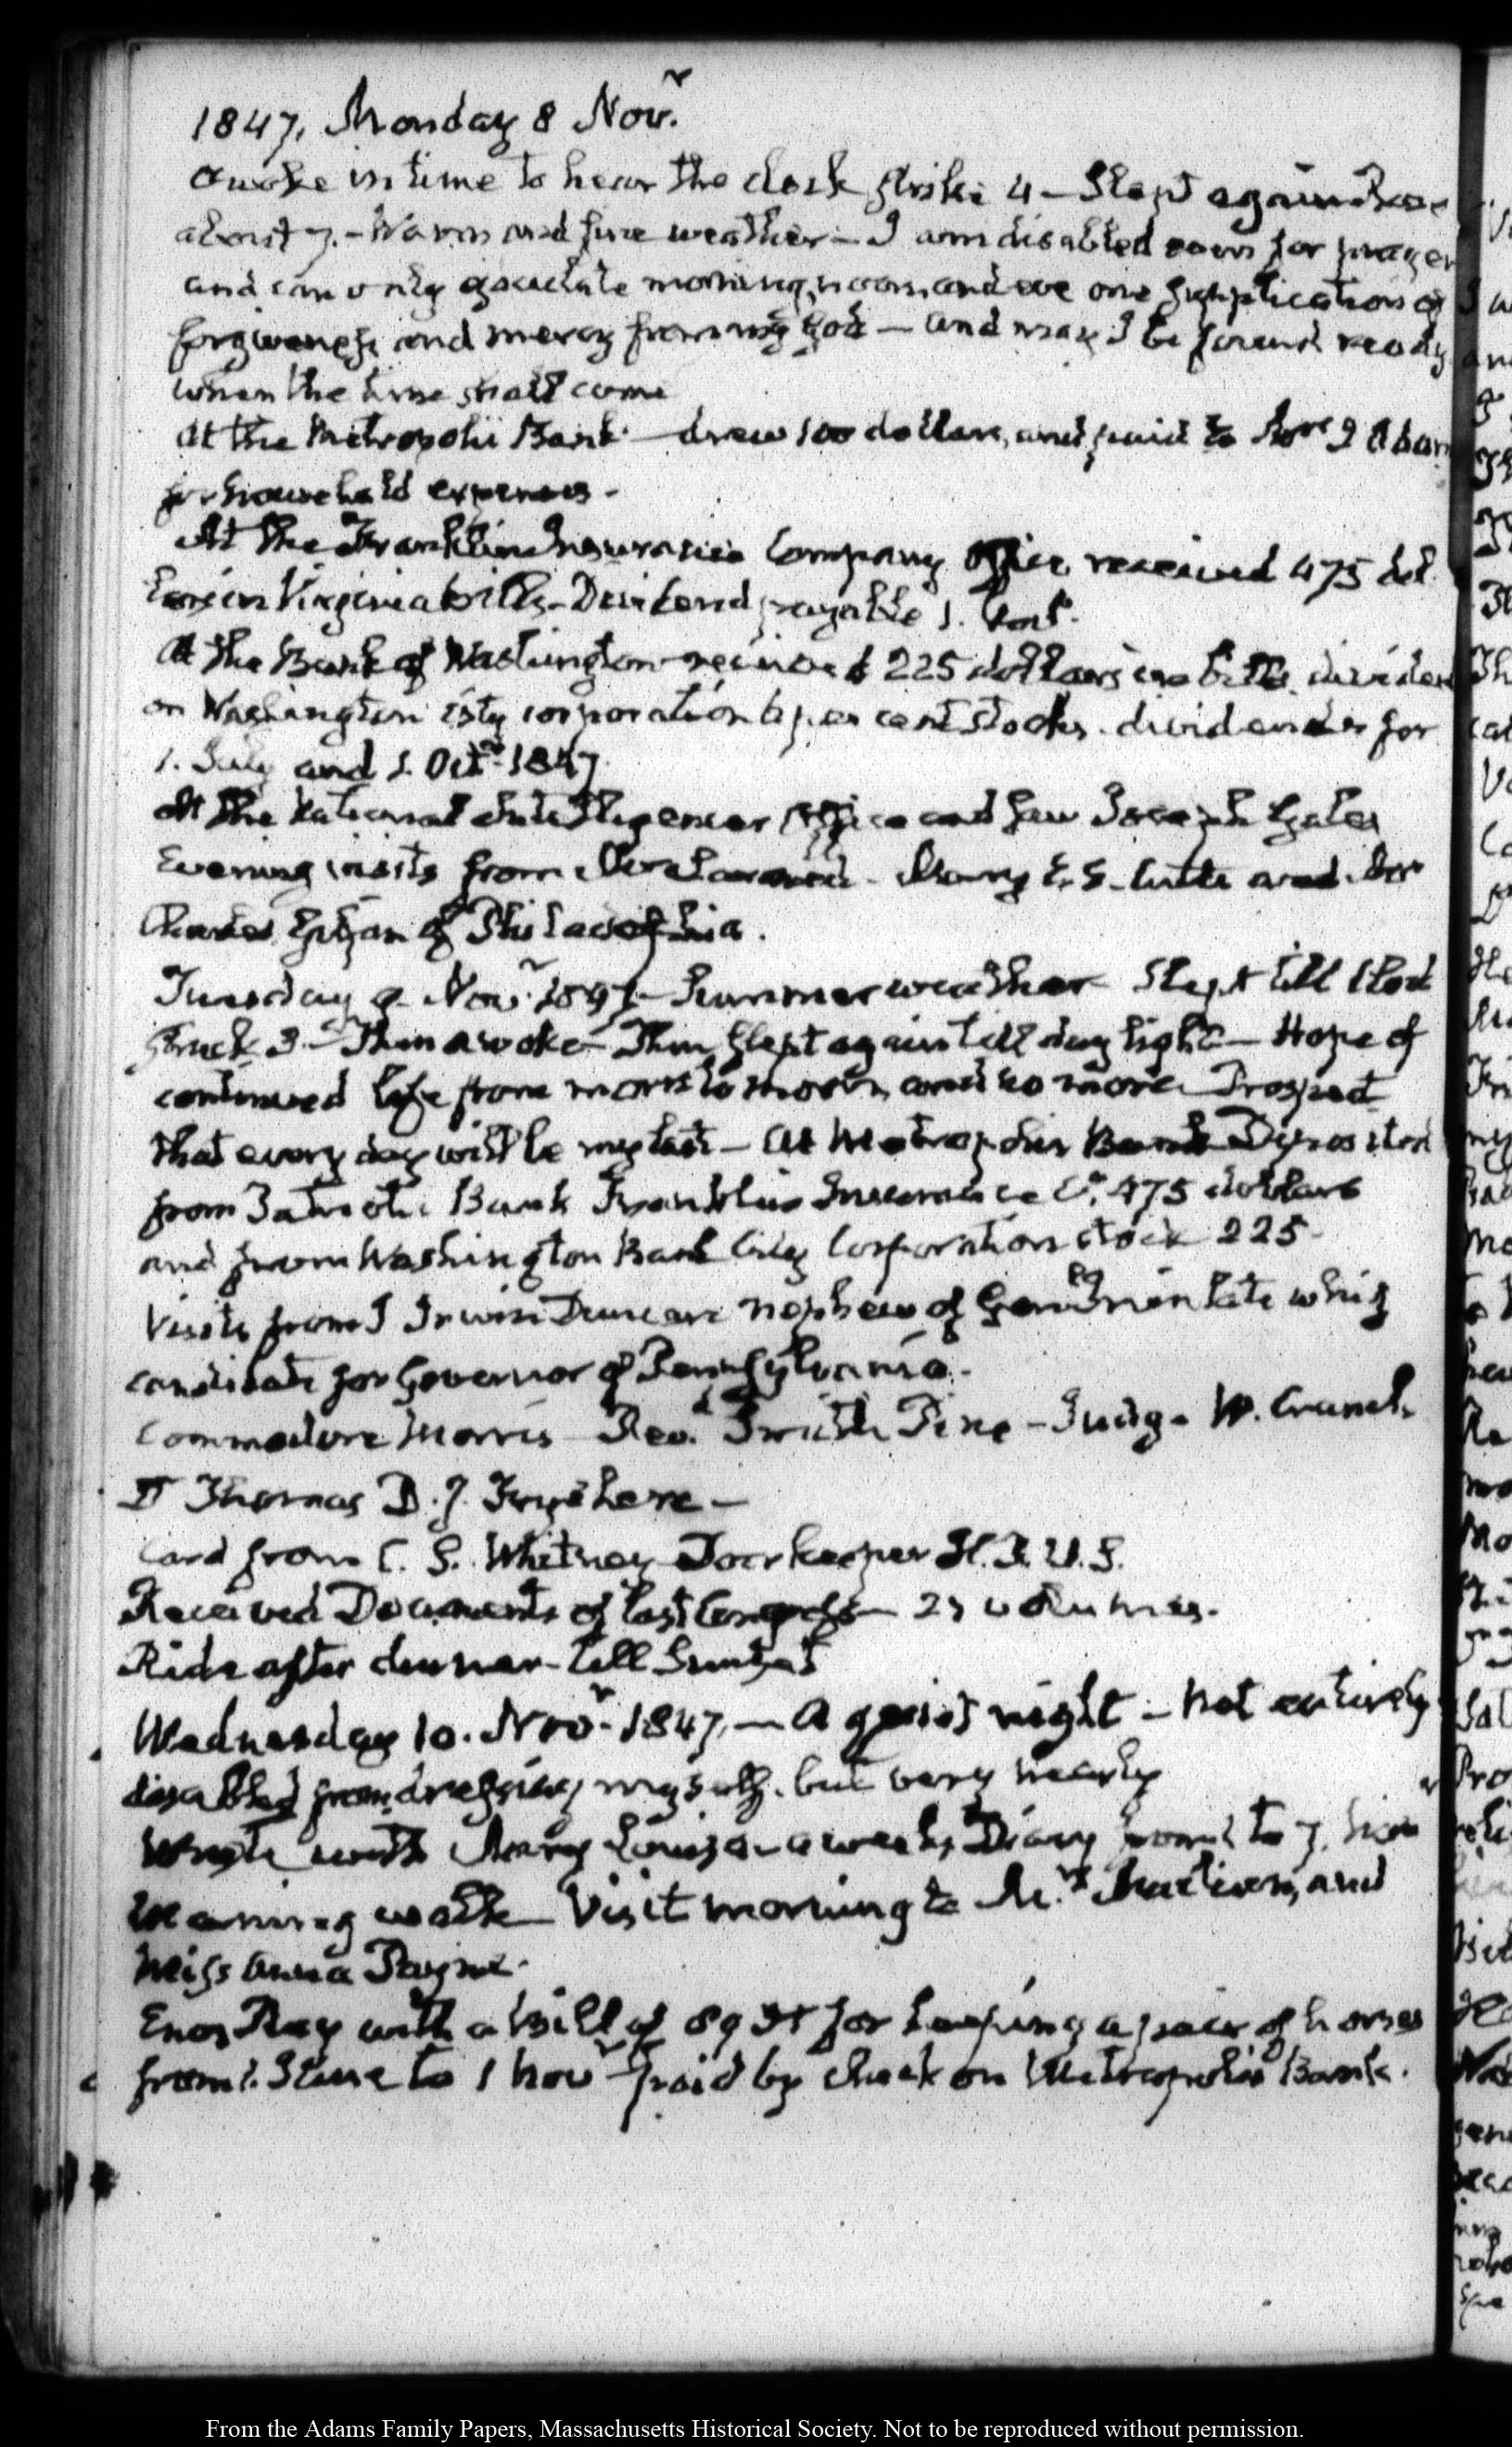 1847. Monday 8 Novr.
awoke in time to hear the clock strike 4 – Slept again Rose
about 7. – Warm and fine weather – I am disabled even for prayer
and can only ejaculate morning, noon, and eve one supplication of
forgiveness and mercy from my God – and may I be found ready
when the time shall come
At the Metropolis Bank – drew 100 dollars, and paid to Mrs J Adams
for household expenses –
At the Franklin Insurance Company Office received 475 dol
in Virginia bills – Dividend payable 1.
At the Bank of Washington received 225 dollars in bills, dividend
on Washington City corporation 6 per cent stocks. dividends for
1. July and 1. Octr 1847.
At the National Intelligencer Office and saw Joseph Gales
Evening visits from Mary E. S. Cutts and Mr
Charles of Philadelphia.
Tuesday 9. Novr. 1847 – Summer weather Slept till Clock
struck 3 – Then awoke – Then slept again till day light – Hope of
continued life from morn to morn, and no more. Prospect
that every day will be my last – At Metropolis Bank Deposited
from Patriotic Bank Franklin Insurance Co. 475 dollars
and from Washington Bank City Corporation stock 225 –
Visits from J Irwin Duncan nephew of Genl Irvin late whig
candidate for Governor of Pennsylvania. –
Commodore Morris – Revd. Smith Pyne – Judge W. Cranch
Thomas B. J. Frye here –
Card from C. S. Whitney Doorkeeper H. R. U. S.
Received Documents of last Congress – 25 volumes.
Ride after dinner – till Sunset
Wednesday 10. Novr. 1847. – A quiet night – not entirely
disabled from dressing myself. but very nearly
Wrote with Mary Louisa – a weeks Diary from 1 to 7. Novr
Evening walk – Visit morning to Mrs Madison, and
Miss Anna Payne.
Enos Ray with a bill of for keeping a pair of horses
from 1. June to 1 Novr – paid by check on Metropolis Bank.
From the Adams Family Papers, Massachusetts Historical Society. Not to be reproduced without permission.